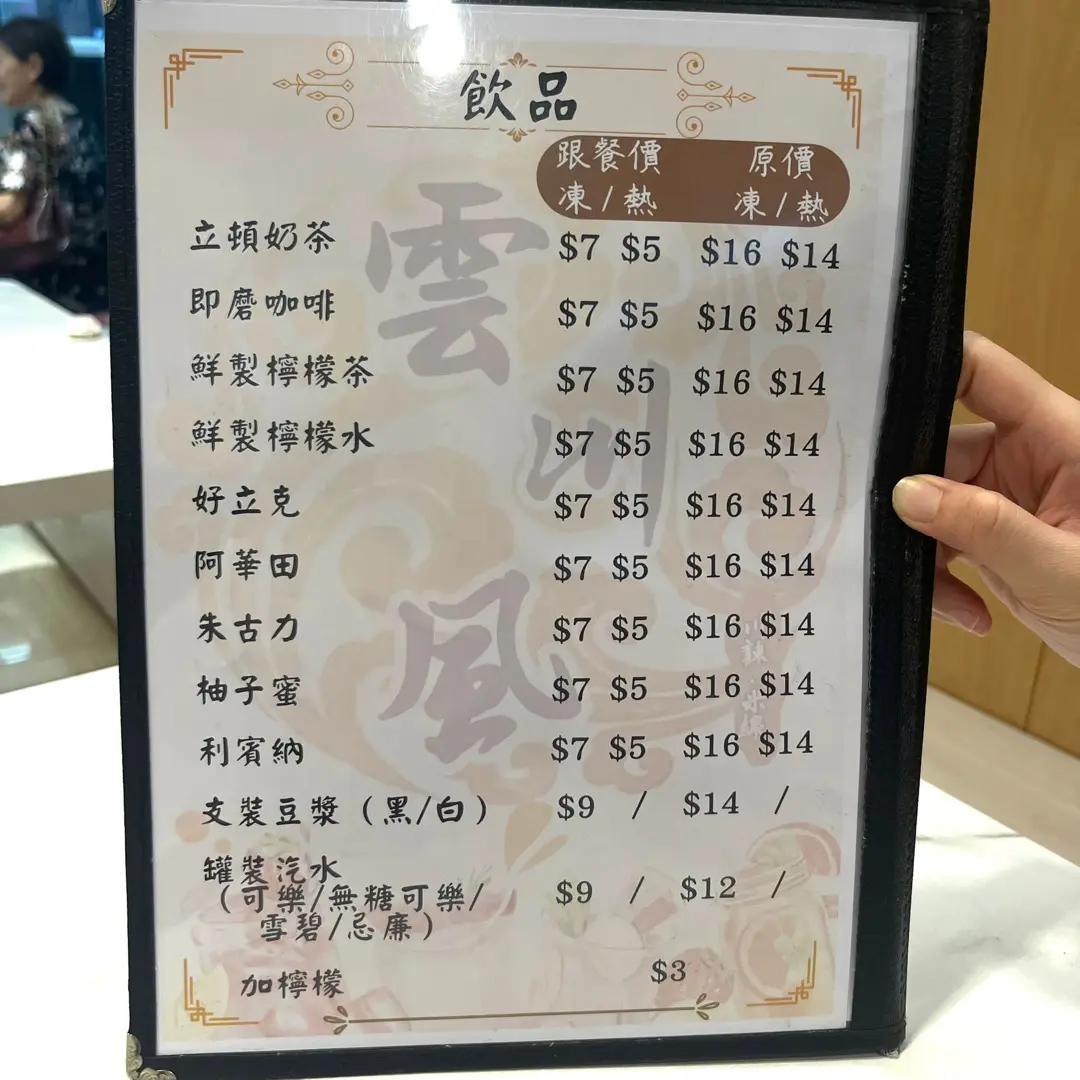 飲品
跟餐價 原價
凍/熱 凍/熱
立頓奶茶 $7 $5 $16 $14
即磨咖啡 $7 $5 $16 $14
鮮製檸檬茶 $7 $5 $16 $14
鮮製檸檬水 $7 $5 $16 $14
好立克 $7 $5 $16 $14
阿華田 $7 $5 $16 $14
朱古力 $7 $5 $16 $14
柚子蜜 $7 $5 $16 $14
利賓納 $7 $5 $16 $14
支裝豆漿（黑/白） $9 / $14 /
罐裝汽水
（可樂/無糖可樂/ $9 / $12 /
雪碧/忌廉）
加檸檬 $3
雲川風